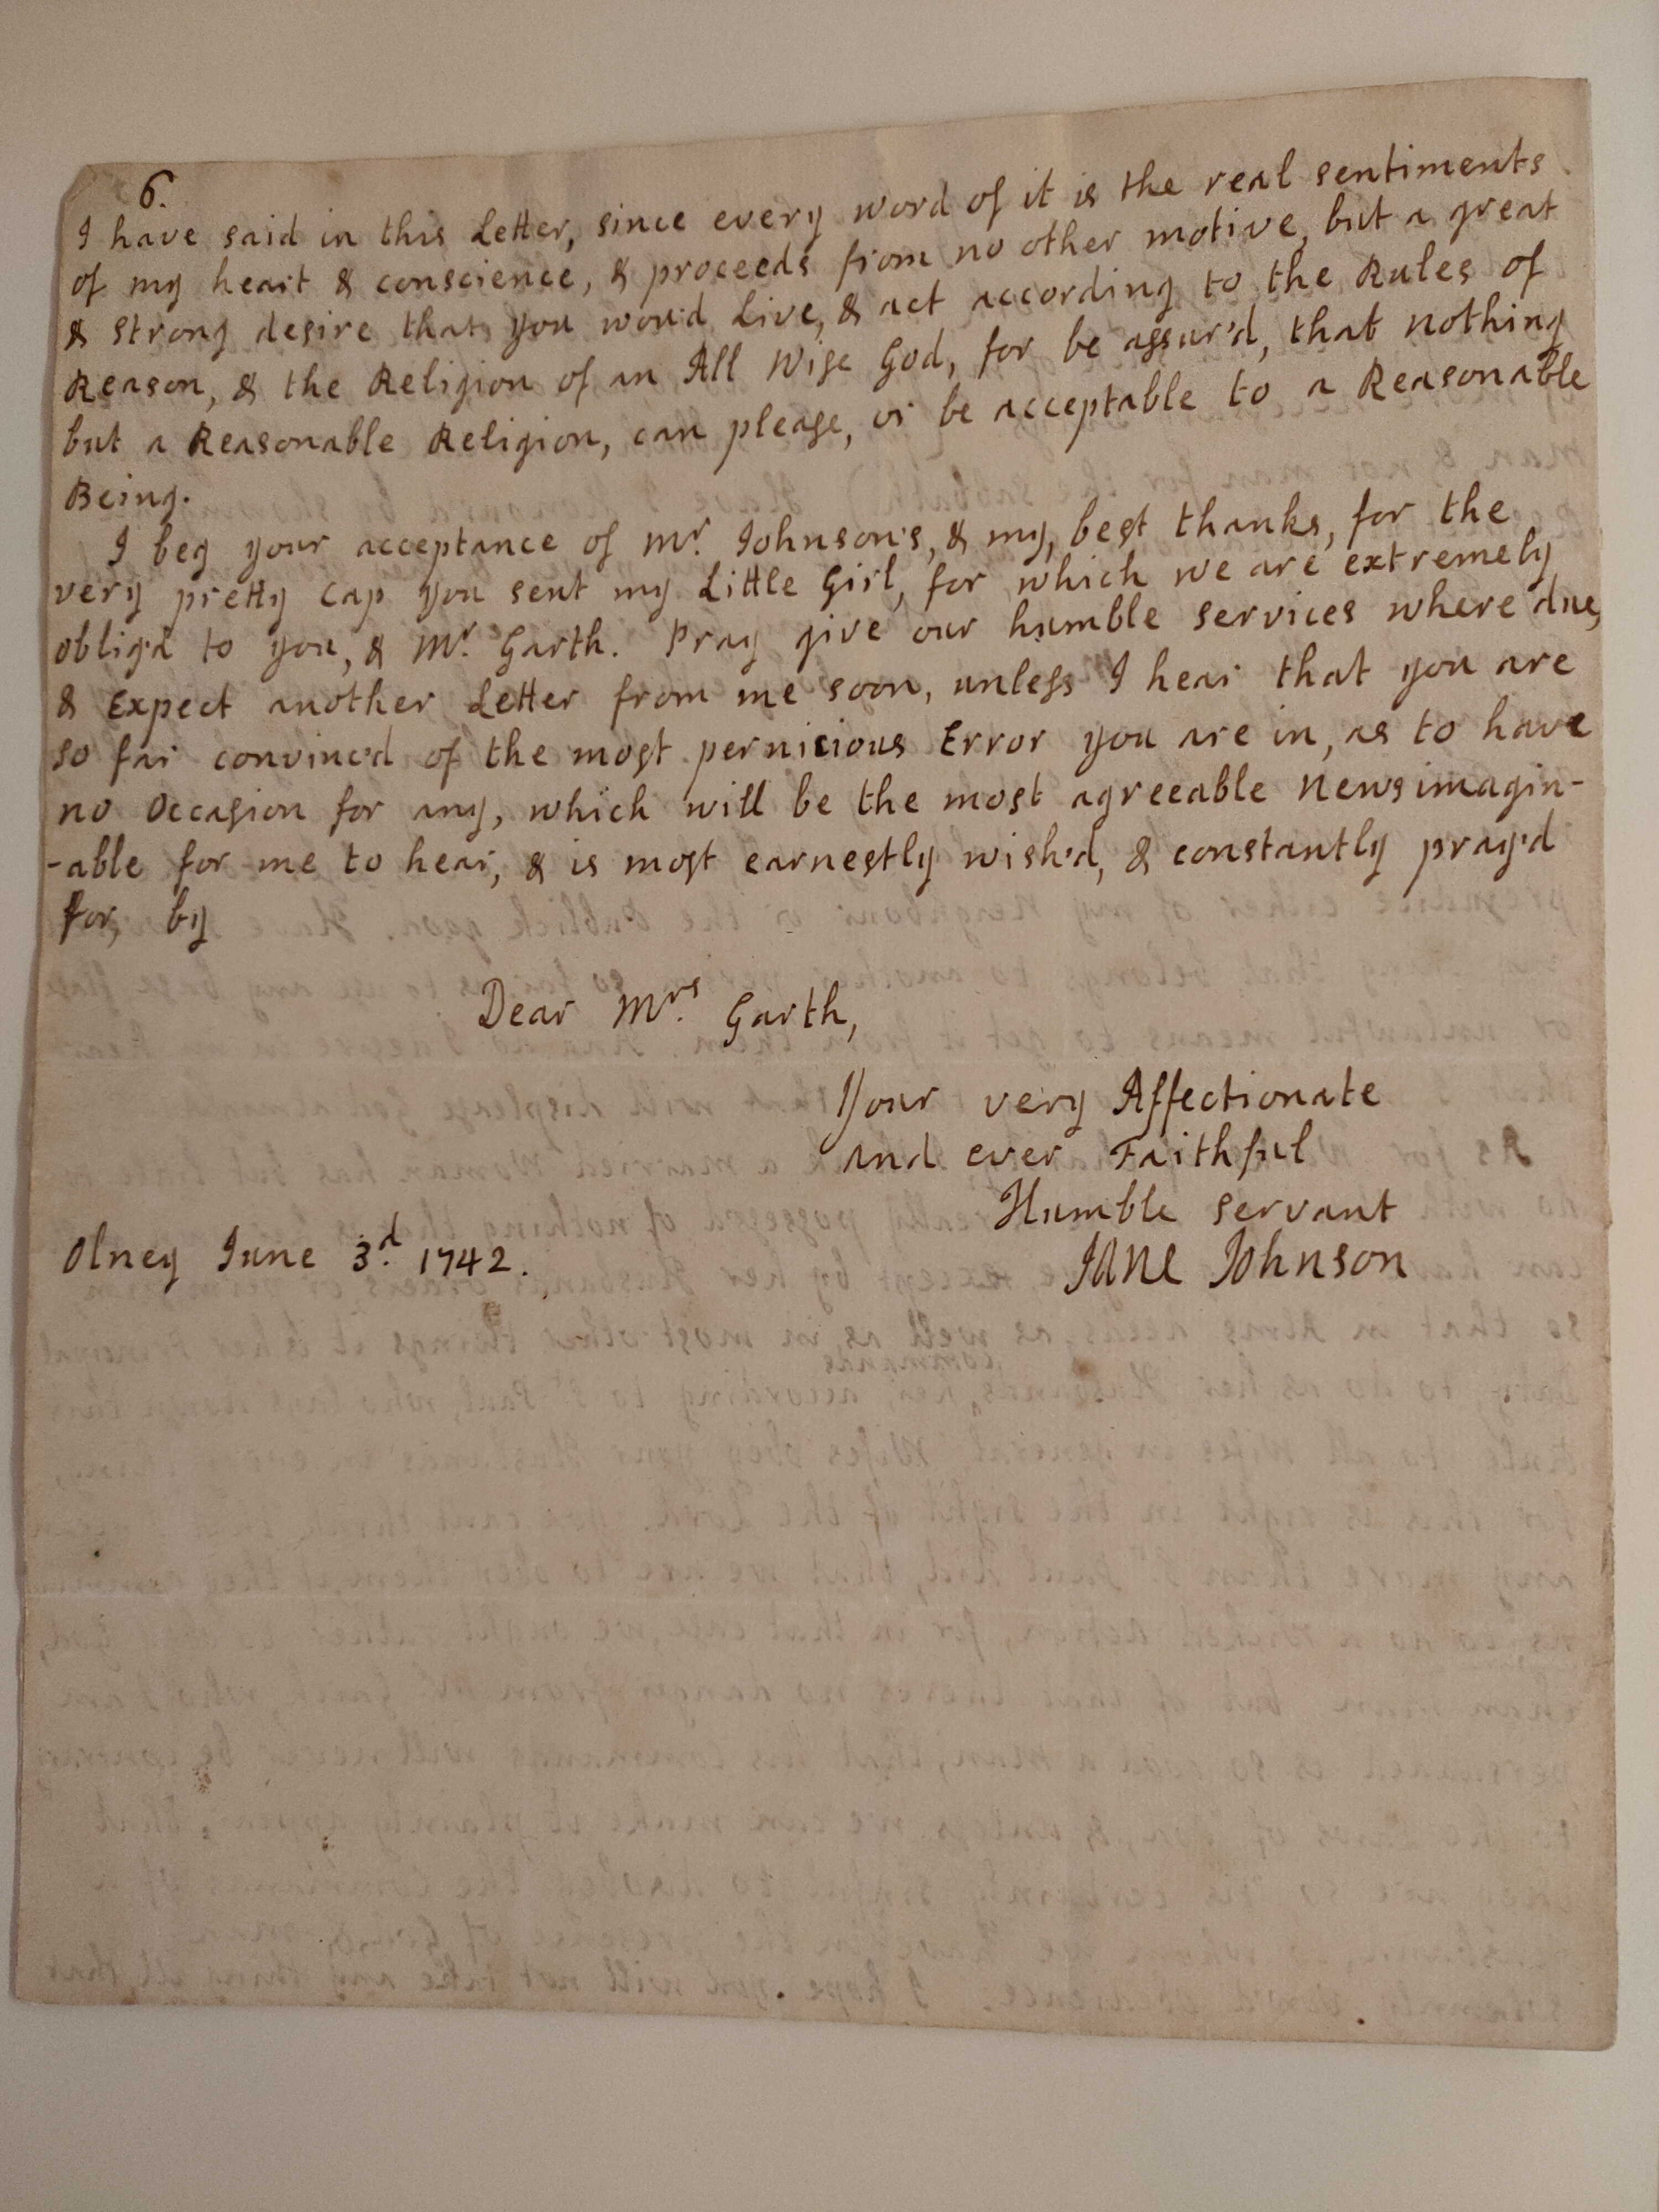 6.
I have said in this Letter, since every word of it is the real sentiments
of my heart & conscience, & proceeds from no other motive, but a great
& strong desire that you wou'd Live, & act according to the Rules of
Reason, & the Religion of an All Wise God, for be assur'd, that nothing
but a Reasonable Religion, can please, or be acceptable to a Reasonable
Being.
I beg your acceptance of Mr. Johnson's, & my, best thanks, for the
very pretty Cap you sent my Little Girl, for which we are extremely
oblig'd to you, & Mr. Garth. Pray give our humble services where due,
& Expect another Letter from me soon, unless I hear that you are
so far convinc'd of the most pernicious Error you are in, as to have
no Occasion for any, which will be the most agreeable News imagin-
-able for me to hear, & is most earnestly wish'd, & constantly pray'd
for, by
Dear Mrs. Garth,
Your very Affectionate
and ever Faithful
Humble servant
Jane Johnson
Olney June 3d. 1742.